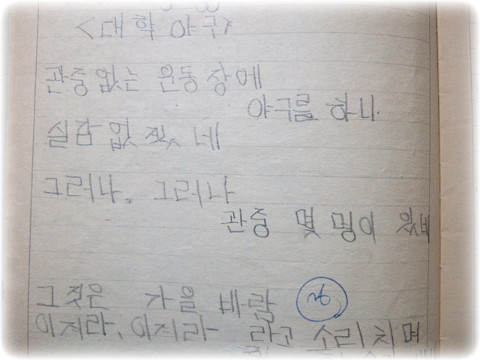 <대학야구>
관중없는 운동장에
야구를 하니
실감 없겠네
그러나, 그러나
관중 몇 명이 있네
그것은 가을 바람
이겨라, 이겨라 라고 소리치며